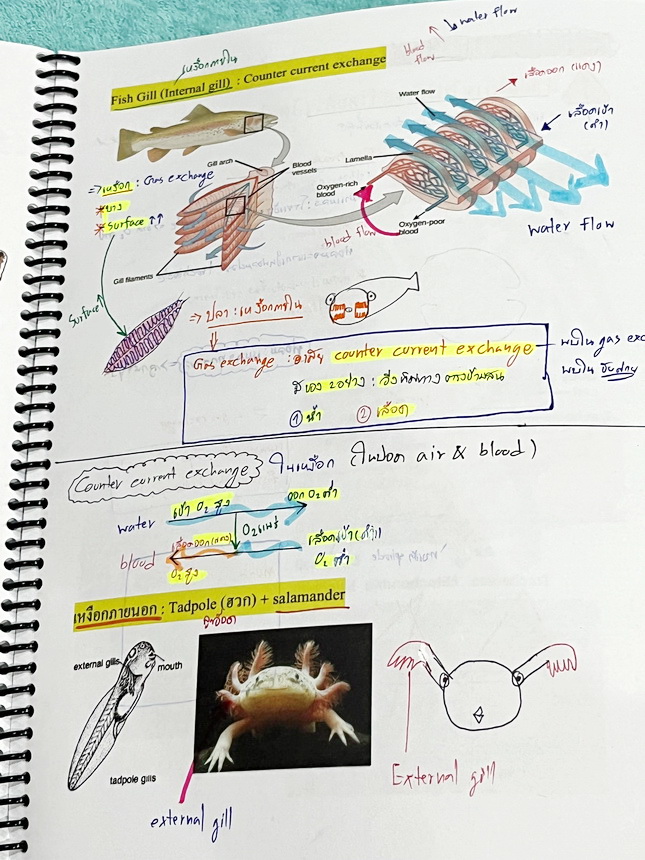 water flow
blood flow
เหงือกภายใน
Fish Gill (Internal gill) : Counter current exchange
เลือดออก (แดง)
Water flow
เลือดเข้า (ดำ)
Gill arch
Blood vessels
Lamella
⇒ เหงือก : Gas exchange
* บาง
* Surface ↑↑
Oxygen-rich blood
Oxygen-poor blood
blood flow
water flow
Gill filaments
Surface ↑
⇒ ปลา : เหงือกภายใน
Gas exchange : อาศัย counter current exchange
มีของ 2 อย่าง : วิ่งทิศทางตรงข้ามสวน
① น้ำ ② เลือด
พบใน gas exc
พบใน
Counter current exchange ในเหงือก (ในปอด air & blood)
เข้า O₂ สูง
ออก O₂ ต่ำ
water
O₂ แพร่
เลือดออก (แดง)
เลือดเข้า (ดำ)
blood
O₂ สูง
O₂ ต่ำ
เหงือกภายนอก : Tadpole (ฮวก) + salamander
ลูกอ๊อด
external gills
mouth
tadpole gills
external gill
External gill